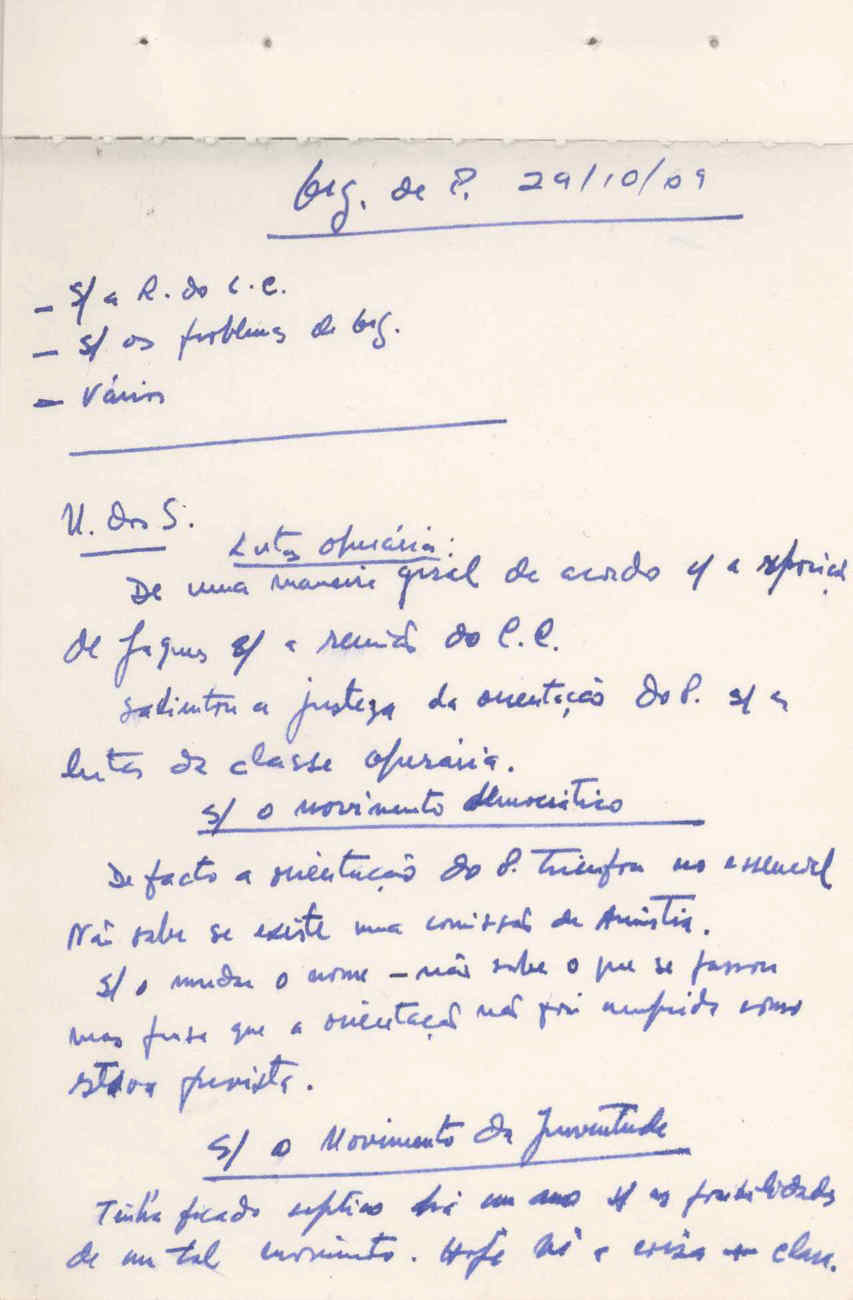 Org. de P. 29/10/09
- S/ a R. do C.C.
- S/ os problemas de Org.
- Vários
U. dos S.
Lutas operárias:
De uma maneira geral de acordo c/ a
de Jaques s/ a reunião do C.C.
salientou a justeza da orientação do P. s/ as
lutas da classe operária.
S/ o movimento democrático
De facto a orientação do P. triunfou no essencial
Não sabe se existe uma comissão de Amnistia.
S/ o mudar o nome - não sabe o que se passou
mas pensa que a orientação não foi cumprida como
estava prevista.
S/ o Movimento da Juventude
Tinha ficado há um ano s/ as possibilidades
de um tal movimento. Hoje vê a coisa + clara.